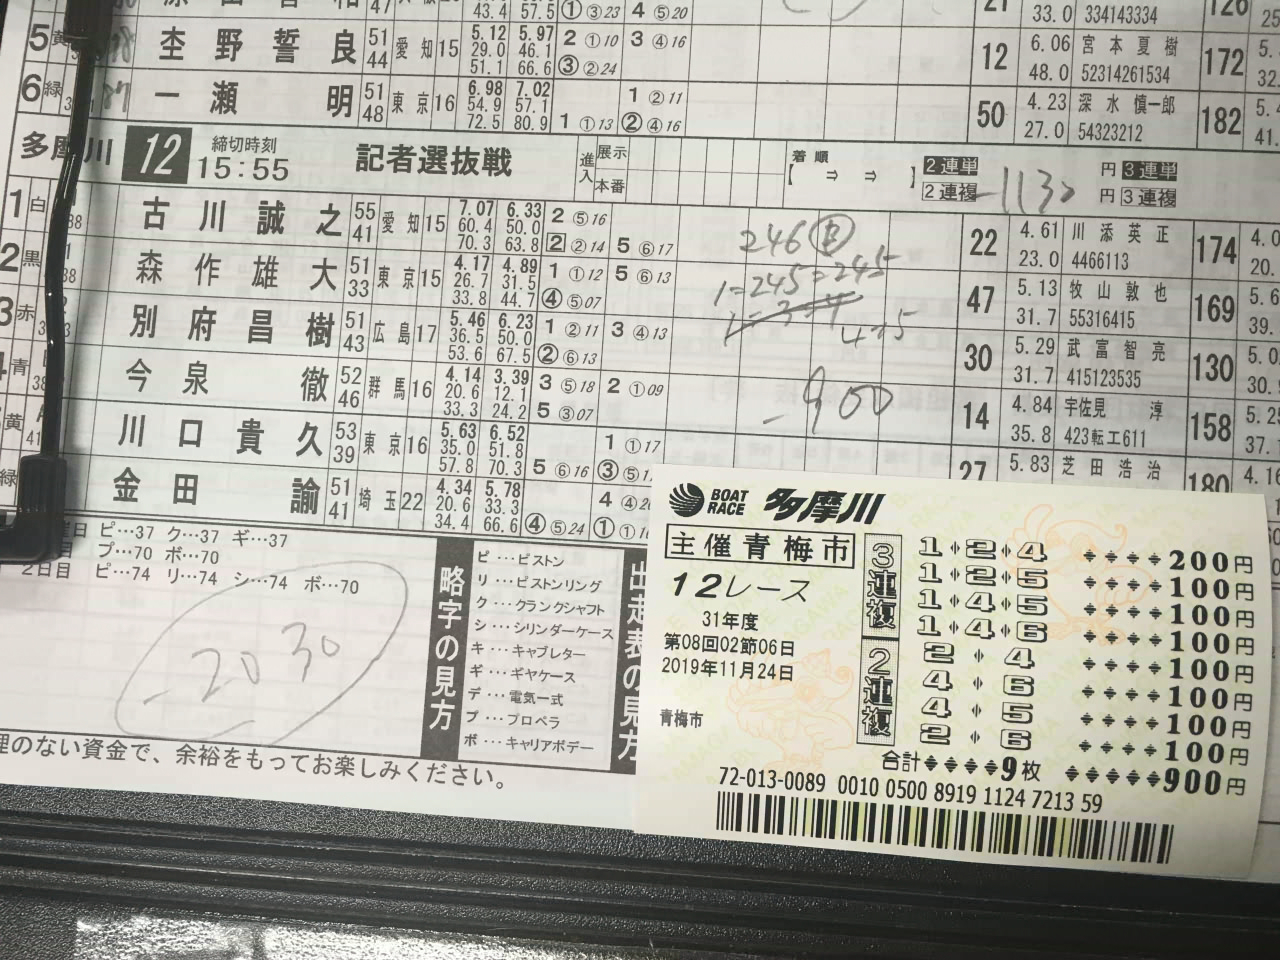 5 黄 杢野誓良 51 44 愛知 15 5.12 29.0 51.1 5.97 46.1 66.6 2 ①10 ③ ②24 3 ④16
12 6.06 48.0 宮本夏樹 52314261534 172
6 緑 一瀬 明 51 48 東京 16 6.98 54.9 72.5 7.02 57.1 80.9 1 ①13 1 ②11 ② ④16
50 4.23 27.0 深水慎一郎 54323212 182
33.0 334143334 126
多摩川 12 締切時刻 15:55 記者選抜戦 進入 展示 本番 着順 【 ⇒ ⇒ 】 2連単 2連複 -1130 円 3連単 円 3連複
1 白 古川誠之 55 41 愛知 15 7.07 60.4 70.3 6.33 50.0 63.8 2 ⑤16 2 ②14 5 ⑥17
246 B
22 4.61 23.0 川添英正 4466113 174
2 黒 森作雄大 51 33 東京 15 4.17 26.7 33.8 4.89 31.5 44.7 1 ①12 ④ ⑤07 5 ⑥13
1-245=245
47 5.13 31.7 牧山敦也 55316415 169
3 赤 別府昌樹 51 43 広島 17 5.46 36.5 53.6 6.23 50.0 67.5 1 ②11 ② ⑥13 3 ④13
30 5.29 31.7 武富智亮 415123535 130
青 今泉 徹 52 46 群馬 16 4.14 20.6 33.3 3.39 12.1 24.2 3 ⑤18 5 ③07 2 ①09
-900
14 4.84 35.8 宇佐見 淳 423転エ611 158
黄 川口貴久 53 39 東京 16 5.63 35.0 57.8 6.52 51.8 70.3 5 ⑥16 1 ①17
27 5.83 芝田浩治 180
緑 金田 諭 51 41 埼玉 22 4.34 20.6 34.4 5.78 33.3 66.6 ④ ⑤24 4
ピ…37 ク…37 ギ…37
プ…70 ボ…70
2日目 ピ…74 リ…74 シ…74 ボ…70
-2030
略字の見方
ピ…ピストン
リ…ピストンリング
ク…クランクシャフト
シ…シリンダーケース
キ…キャブレター
ギ…ギヤケース
デ…電気一式
プ…プロペラ
ボ…キャリアボデー
出走表の見方
理のない資金で、余裕をもってお楽しみください。
BOAT RACE 多摩川
主催青梅市
12レース
31年度
第08回02節06日
2019年11月24日
青梅市
3連複
1 2 4 200円
1 2 5 100円
1 4 5 100円
1 4 6 100円
2連複
2 4 100円
4 6 100円
4 5 100円
2 6 100円
合計 9枚 900円
72-013-0089 0010 0500 8919 1124 7213 59